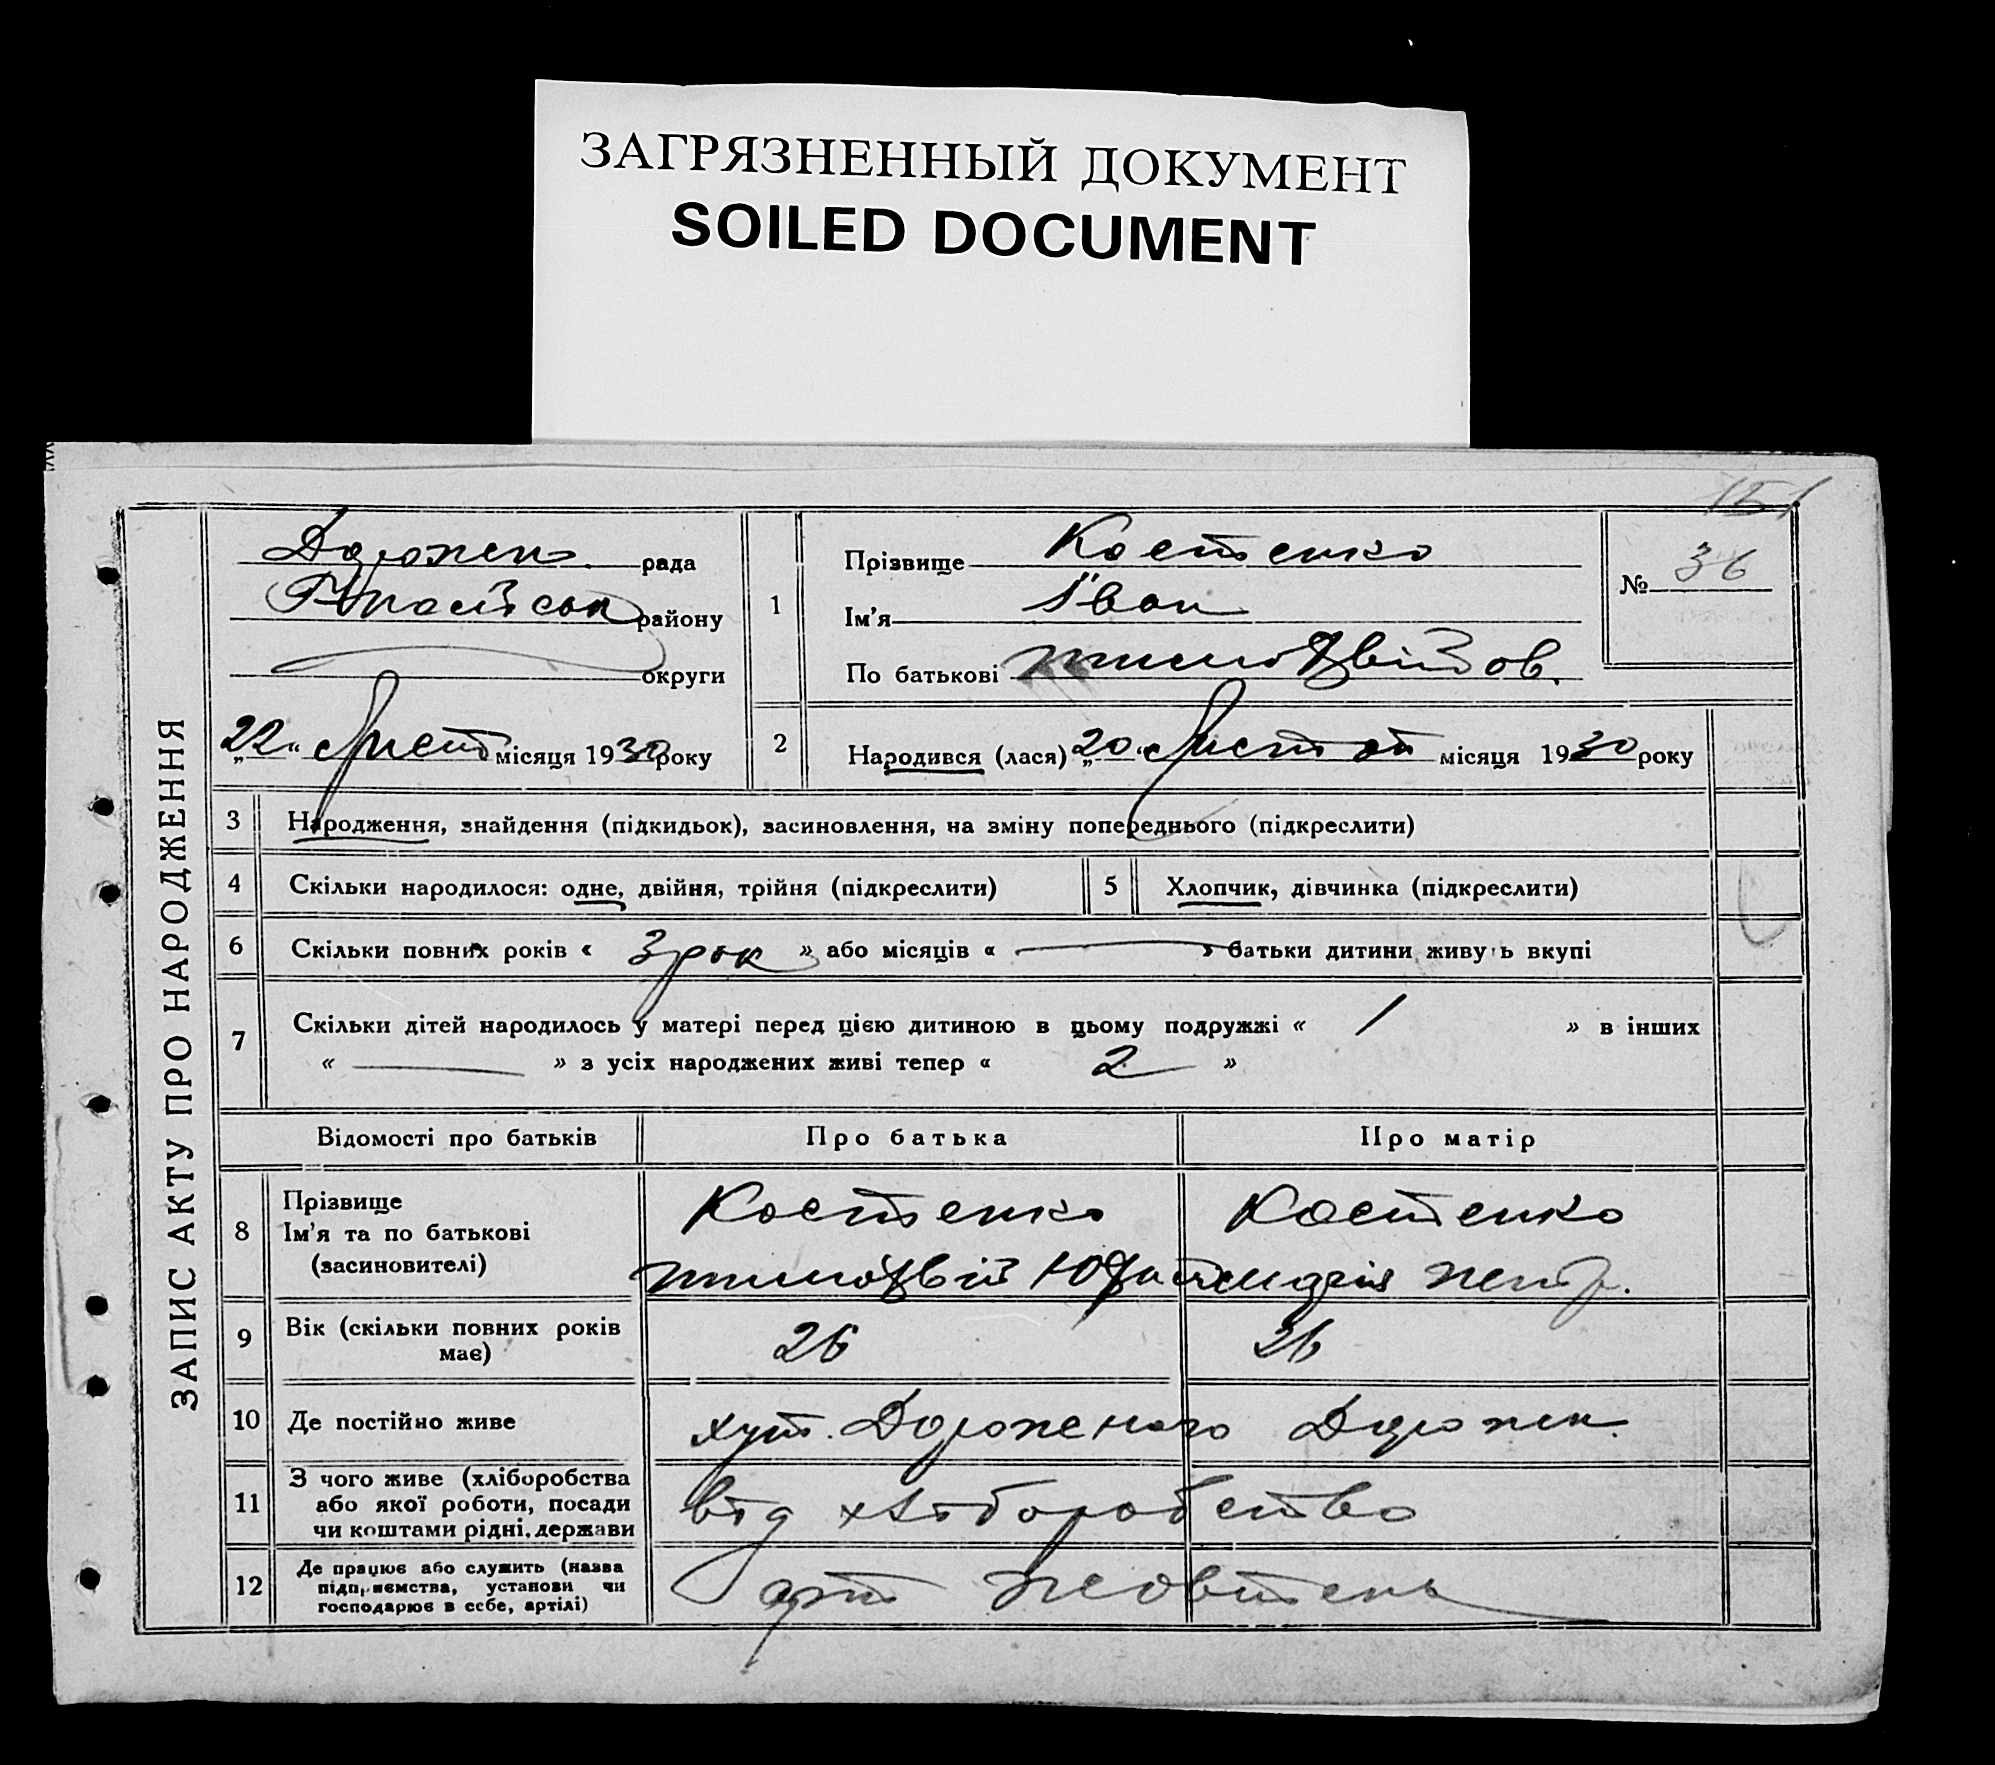 ЗАГРЯЗНЕННЫЙ ДОКУМЕНТ
SOILED DOCUMENT
151
ЗАПИС АКТУ ПРО НАРОДЖЕННЯ
рада
району
округи
„22“ Лист місяця 1930 року
1
Прізвище Костенко
Ім'я Іван
По батькові тимофвійов.
№ 36
2
Народився (лася) „20“ Листоп місяця 1930 року
3 Народження, знайдення (підкидьок), засиновлення, на зміну попереднього (підкреслити)
4 Скільки народилося: одне, двійня, трійня (підкреслити)
5 Хлопчик, дівчинка (підкреслити)
6 Скільки повних років « 3 рок » або місяців « — » батьки дитини живуть вкупі
7 Скільки дітей народилось у матері перед цією дитиною в цьому подружжі « 1 » в інших
« — » з усіх народжених живі тепер « 2 »
Відомості про батьків Про батька Про матір
8 Прізвище
Ім'я та по батькові
(засиновителі)
Костенко Костенко
тимофвій
9 Вік (скільки повних років
має)
26 26
10 Де постійно живе хут.
11 З чого живе (хліборобства
або якої роботи, посади
чи коштами рідні, держави
від хліборобство
12 Де працює або служить (назва
підприємства, установи чи
господарює в себе, артілі)
арт Жовтень